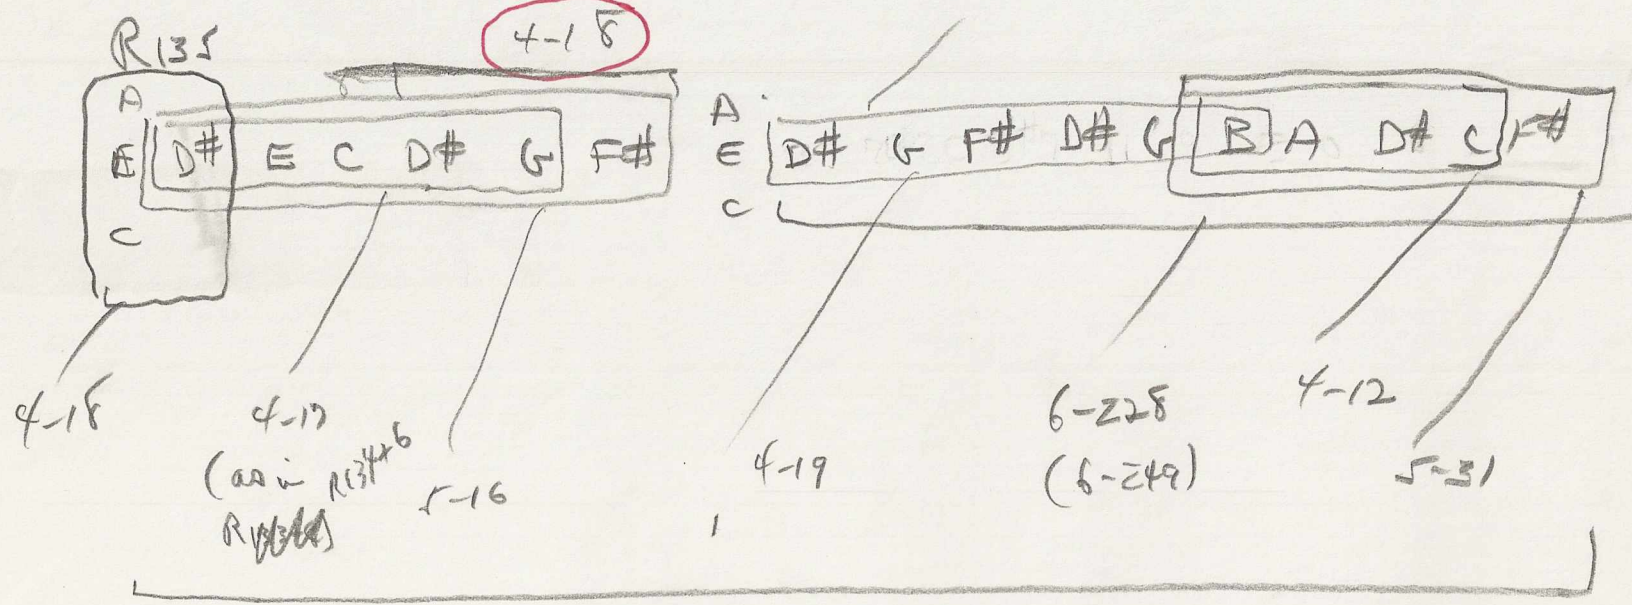 R135
4-18
A
E D# E C D# G F#
C
A
E D# G F# D# G B A D# C F#
C
4-18
4-17
(as in R134+6
5-16
4-19
6-Z28
(6-Z49)
4-12
5-31